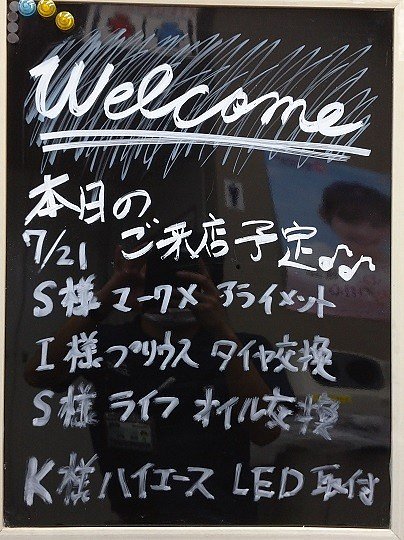 Welcome
本日の
7/21 ご来店予定♪♪
S様 マークX アライメント
I様 プリウス タイヤ交換
S様 ライフ オイル交換
K様 ハイエース LED取付